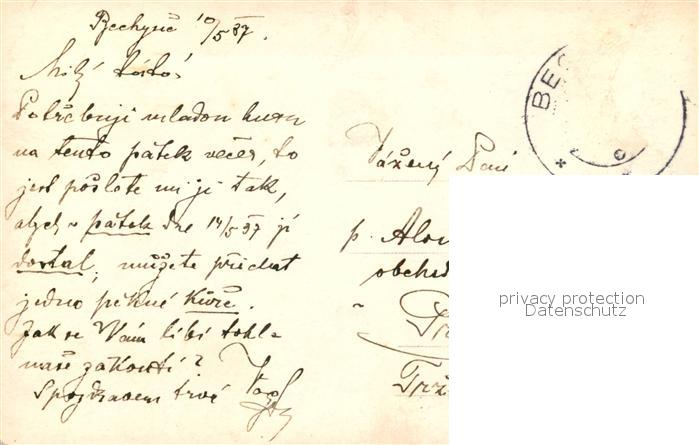 Bechyně 10/5 37.
Milý
Potřebuji mladou kuru
na tento pátek večer, to
jest pošlete mi ji tak,
abych v pátek dne 14/5 37 ji
dostal, můžete přidat
jedno pěkné kuře.
Jak se Vám líbí tohle
naše zákoutí?
S pozdravem
BE
C
Vážený Pan
p. Aloi
obchod
Trž
privacy protection
Datenschutz